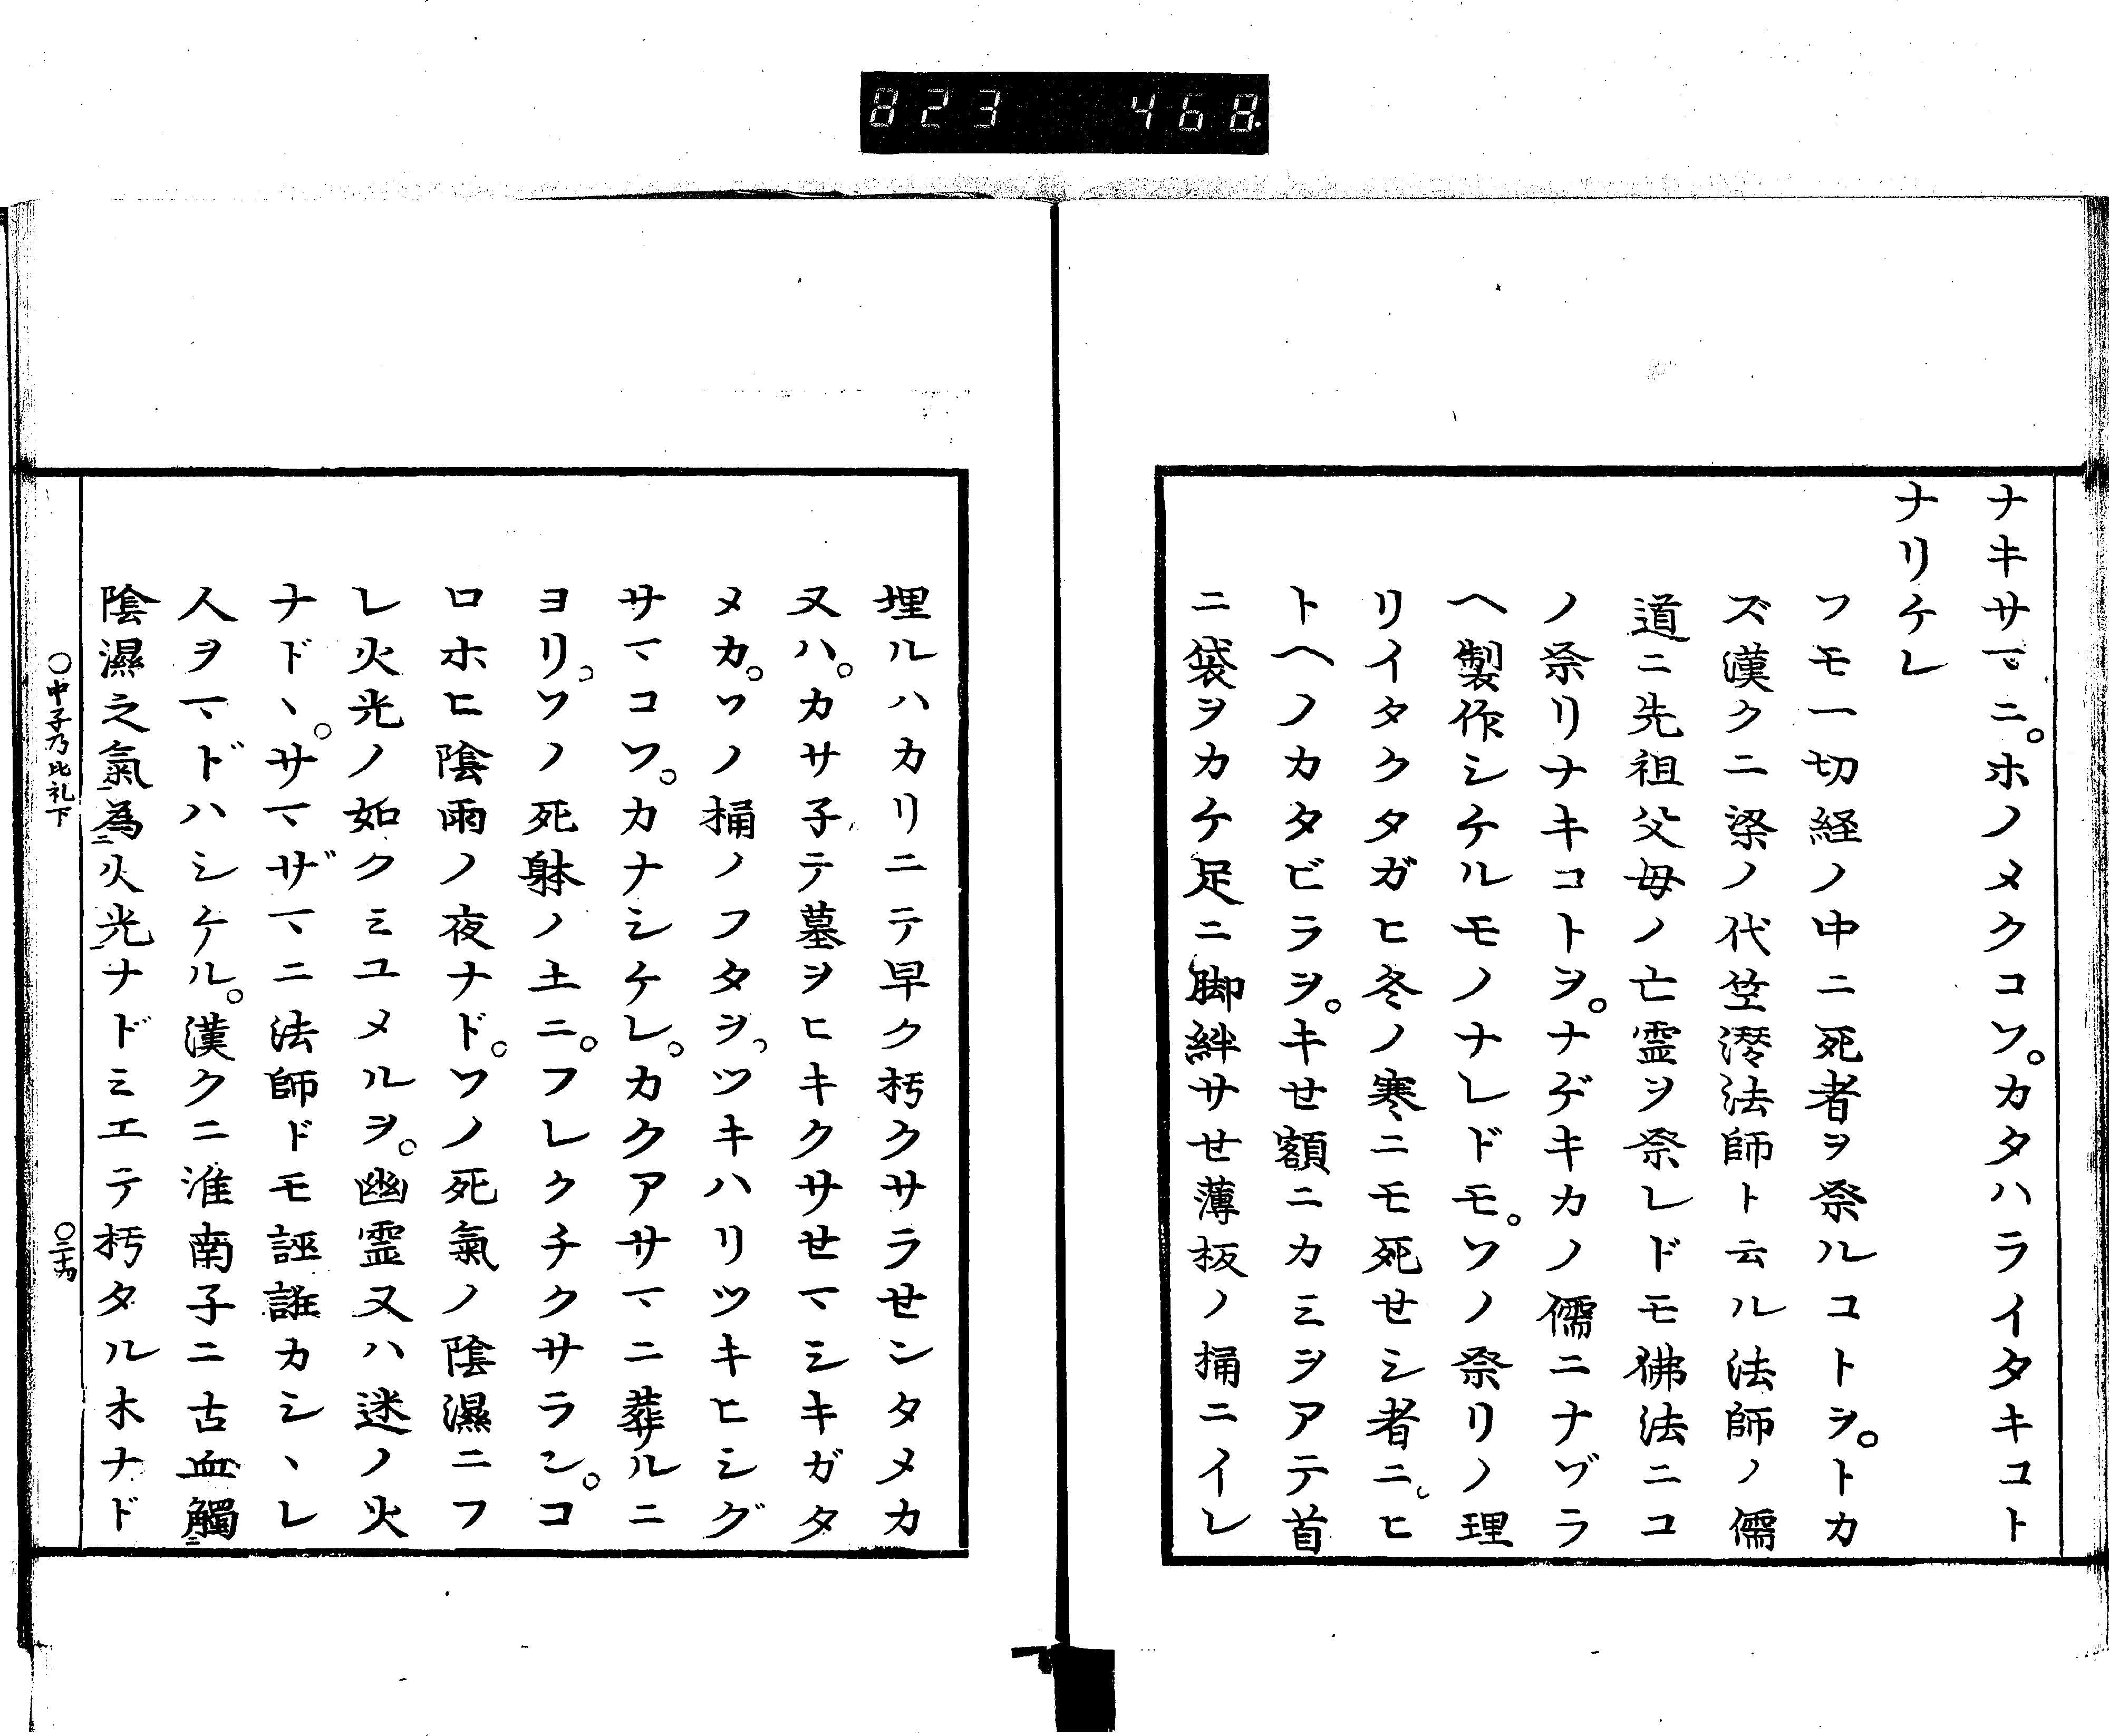 823 468
ナキサマニ。ホノメクコソ。カタハライタキコト
ナリケレ
ソモ一切経ノ中ニ死者ヲ祭ルコトヲ。トカ
ズ漢クニ梁ノ代竺潜法師ト云ル法師ノ儒
道ニ先祖父母ノ亡霊ヲ祭レドモ佛法ニコ
ノ祭リナキコトヲ。ナゲキカノ儒ニナゾラ
ヘ製作シケルモノナレドモ。ソノ祭リノ理
リイタクタガヒ冬ノ寒ニモ死せシ者ニ。ヒ
トヘノカタビラヲ。キせ額ニカミヲアテ首
ニ袋ヲカケ足ニ脚絆サせ薄板ノ桶ニイレ
埋ルハカリニテ早ク朽クサラせンタメカ
又ハ。カサ子テ墓ヲヒキクサせマシキガタ
メカ。ソノ桶ノフタヲ。ツキハリツキヒシグ
サマコソ。カナシケレ。カクアサマニ葬ルニ
ヨリ。ソノ死躰ノ土ニ。フレクチクサラン。コ
ロホヒ陰雨ノ夜ナド。ソノ死氣ノ陰濕ニフ
レ火光ノ如クミユメルヲ。幽霊又ハ迷ノ火
ナドヽ。サマザマニ法師ドモ誣誑カシヽレ
人ヲマドハシケル。漢クニ淮南子ニ古血觸ニ
陰濕之氣一為ニ火光一ナドミエテ朽タル木ナド
○中子乃比礼下